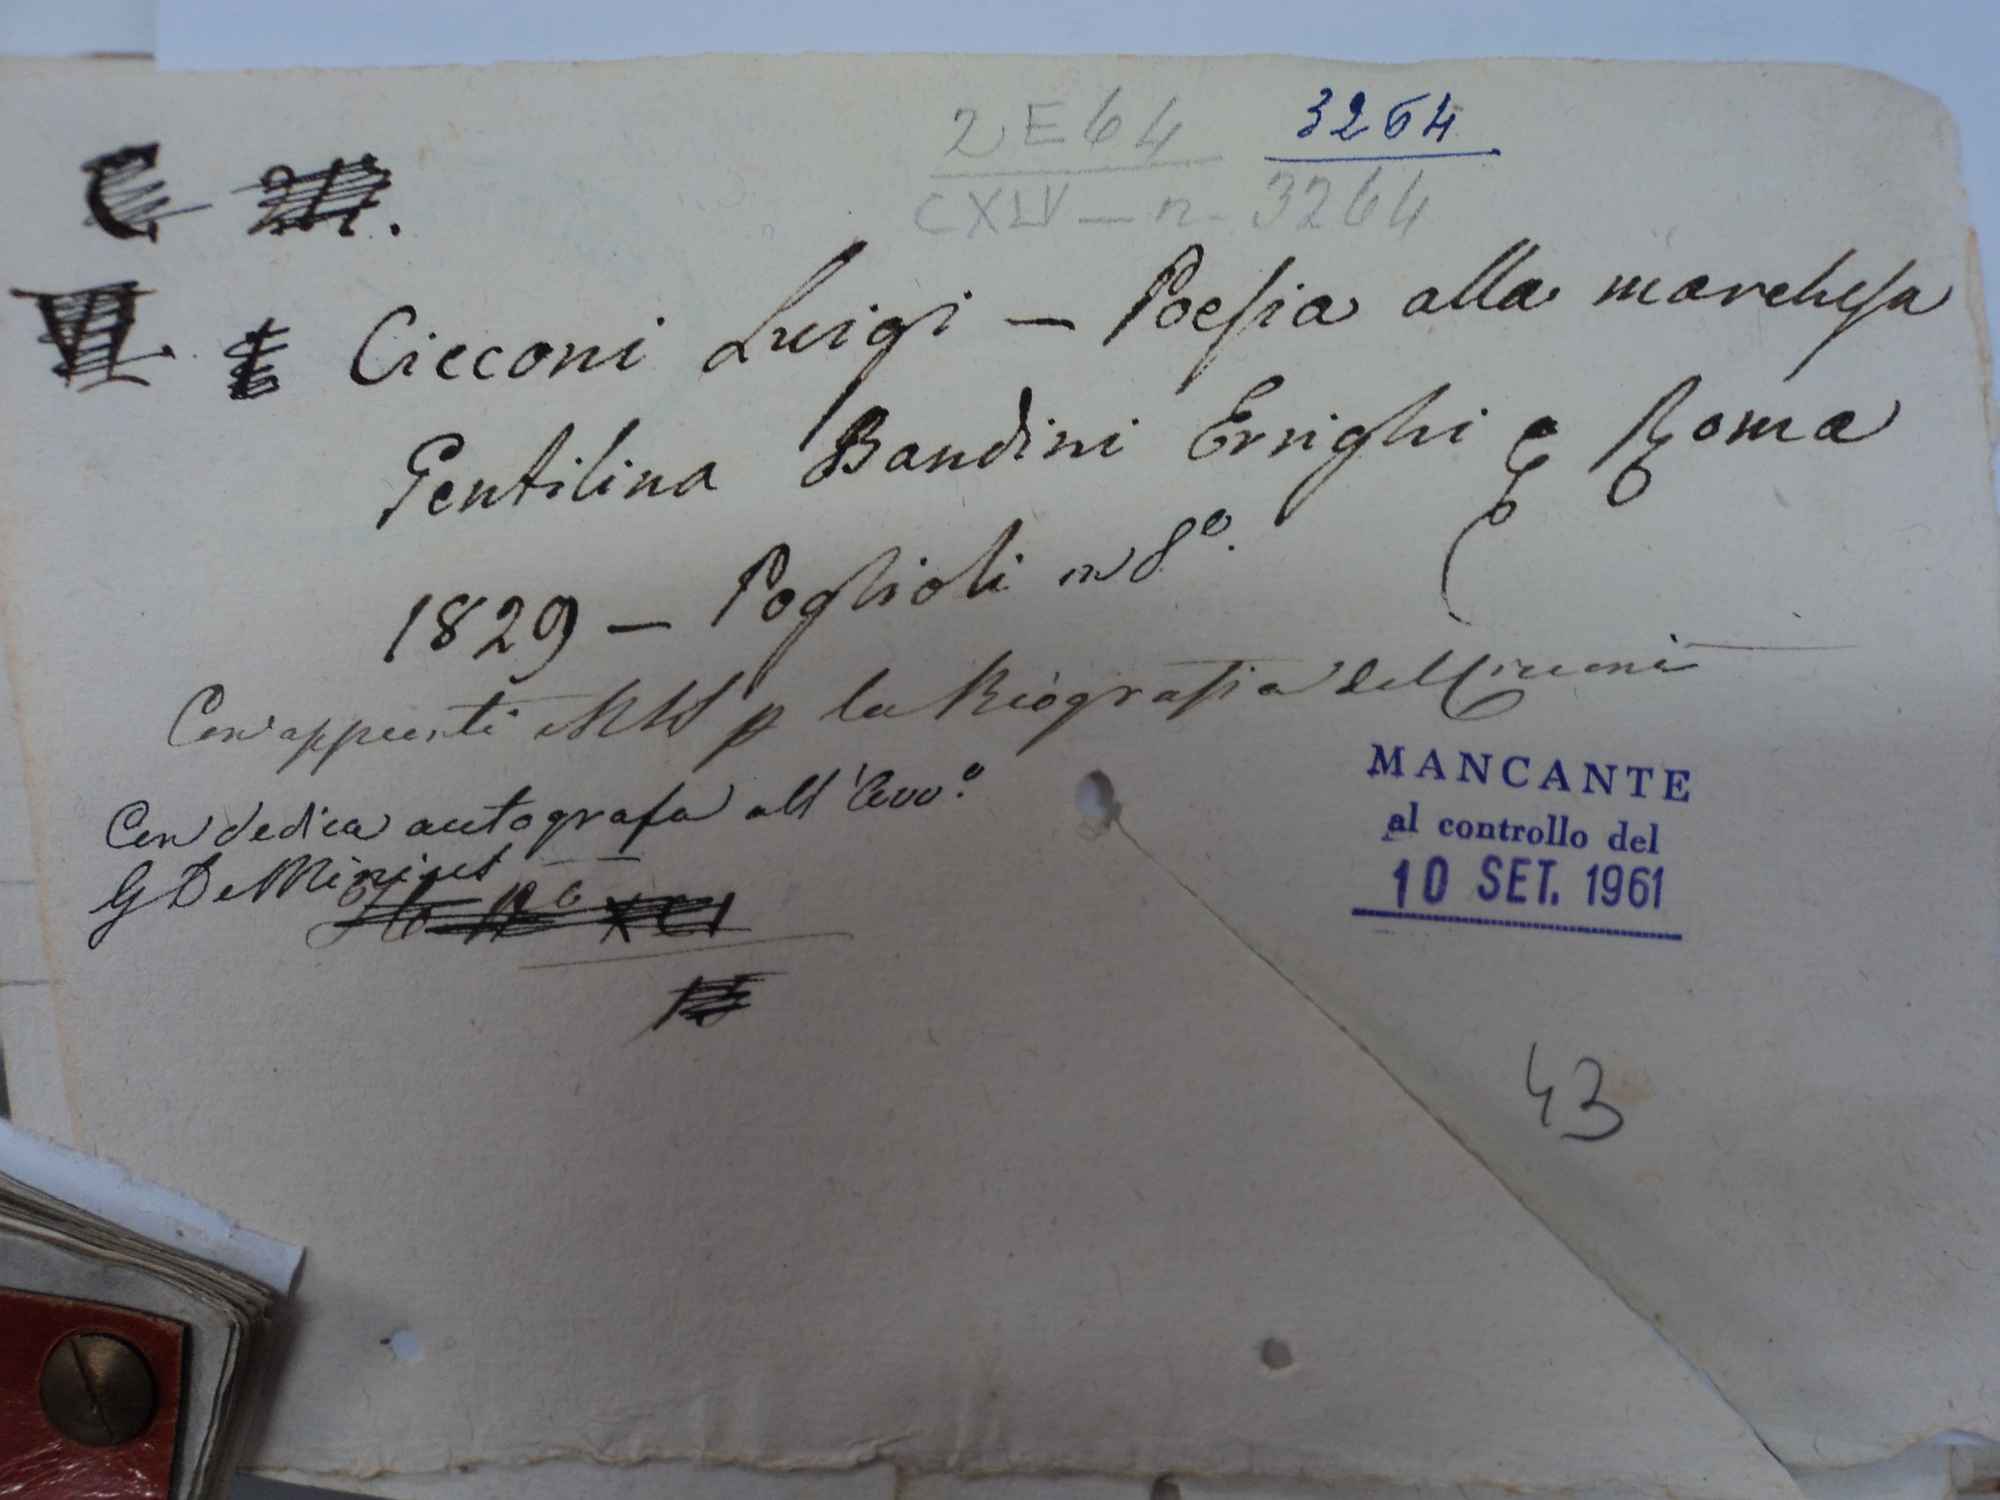 2E64 3264
CXLV – n. 3264
C
VI Cicconi Luigi – Poesia alla marchesa
Gentilina Bandini Errighi Roma
1829 – Poglioli in 8º.
Con appunti MSS p la Biografia del Cicconi
Con dedica autografa all'Avv.º
G De Minicis
XCI
MANCANTE
al controllo del
10 SET. 1961
43